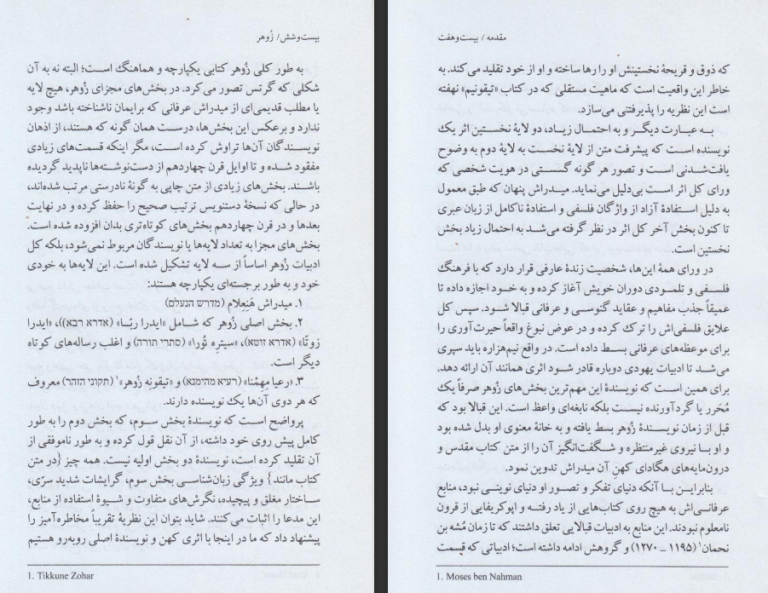 بیست‌وشش / زُوهر
به طور کلی زُوهر کتابی یکپارچه و هماهنگ است؛ البته نه به آن
شکلی که گرتس تصور می‌کرد. در بخش‌های مجزای زُوهر، هیچ لایه
یا مطلب قدیمی‌ای از میدراش عرفانی که برایمان ناشناخته باشد وجود
ندارد و برعکس این بخش‌ها، درست همان گونه که هستند، از اذهان
نویسندگان آن‌ها تراوش کرده است، مگر اینکه قسمت‌های زیادی
مفقود شده و تا اوایل قرن چهاردهم از دست‌نوشته‌ها ناپدید گردیده
باشند. بخش‌های زیادی از متن چاپی به گونهٔ نادرستی مرتب شده‌اند،
در حالی که نسخهٔ دستنویس ترتیب صحیح را حفظ کرده و در نهایت
بعدها و در قرن چهاردهم بخش‌های کوتاه‌تری بدان افزوده شده است.
بخش‌های مجزا به تعداد لایه‌ها یا نویسندگان مربوط نمی‌شود، بلکه کل
ادبیات زُوهر اساساً از سه لایه تشکیل شده است. این لایه‌ها به خودی
خود و به طور برجسته‌ای یکپارچه هستند:
۱. میدراش هَنِعِلام (מדרש הנעלם)
۲. بخش اصلی زُوهر که شامل «ایدرا ربّا» (אדרא רבא))، «ایدرا
زوتّا» (אדרא זוטא)، «سیتره تُورا» (סתרי תורה) و اغلب رساله‌های کوتاه
دیگر است.
۳. «رعیا مِهِمْنا» (רעיא מהימנא) و «تیقونه زُوهر»۱ (תקוני הזהר) معروف
که هر دوی آن‌ها یک نویسنده دارند.
پرواضح است که نویسندهٔ بخش سوم، که بخش دوم را به طور
کامل پیش روی خود داشته، از آن نقل قول کرده و به طور ناموفقی از
آن تقلید کرده است، نویسندهٔ دو بخش اولیه نیست. همه چیز {در متن
کتاب مانند} ویژگی زبان‌شناسی بخش سوم، گرایشات شدید سرّی،
ساختار مغلق و پیچیده، نگرش‌های متفاوت و شیوهٔ استفاده از منابع،
این مدعا را اثبات می‌کنند. شاید بتوان این نظریهٔ تقریباً مخاطره‌آمیز را
پیشنهاد داد که ما در اینجا با اثری کهن و نویسندهٔ اصلی روبه‌رو هستیم
1. Tikkune Zohar
مقدمه / بیست‌وهفت
که ذوق و قریحهٔ نخستینش او را رها ساخته و او از خود تقلید می‌کند. به
خاطر این واقعیت است که ماهیت مستقلی که در کتاب «تیقونیم» نهفته
است این نظریه را پذیرفتنی می‌سازد.
به عبارت دیگر و به احتمال زیاد، دو لایهٔ نخستین اثر یک
نویسنده است که پیشرفت متن از لایهٔ نخست به لایهٔ دوم به وضوح
یافت‌شدنی است و تصور هر گونه گسستی در هویت شخصی که
ورای کل اثر است بی‌دلیل می‌نماید. میدراش پنهان که طبق معمول
به دلیل استفادهٔ آزاد از واژگان فلسفی و استفادهٔ ناکامل از زبان عبری
تا کنون بخش آخر کل اثر در نظر گرفته می‌شد به احتمال زیاد بخش
نخستین است.
در ورای همهٔ این‌ها، شخصیت زندهٔ عارفی قرار دارد که با فرهنگ
فلسفی و تلمودی دوران خویش آغاز کرده و به خود اجازه داده تا
عمیقاً جذب مفاهیم و عقاید گنوسی و عرفانی قبالا شود. سپس کل
علایق فلسفی‌اش را ترک کرده و در عوض نبوغ واقعاً حیرت‌آوری را
برای موعظه‌های عرفانی بسط داده است. در واقع نیم‌هزاره باید سپری
می‌شد تا ادبیات یهودی دوباره قادر شود اثری همانند آن ارائه دهد.
برای همین است که نویسندهٔ این مهم‌ترین بخش‌های زُوهر صرفاً یک
مُحَرر یا گردآورنده نیست بلکه نابغه‌ای واعظ است. این قبالا بود که
قبل از زمان نویسندهٔ زُوهر بسط یافته و به خانهٔ معنوی او بدل شده بود
و او با نیروی غیرمنتظره و شگفت‌انگیز آن را از متن کتاب مقدس و
درون‌مایه‌های هگادای کهنِ آن میدراش تدوین نمود.
بنابراین با آنکه دنیای تفکر و تصور او دنیای نوینی نبود، منابع
عرفانی‌اش به هیچ روی کتاب‌هایی از یاد رفته و اپوکریفایی از قرون
نامعلوم نبودند. این منابع به ادبیات قبالایی تعلق داشتند که تا زمان مُشه بن
نحمان۱ (۱۱۹۵ ـ ۱۲۷۰) و گروهش ادامه داشته است؛ ادبیاتی که قسمت
1. Moses ben Nahman